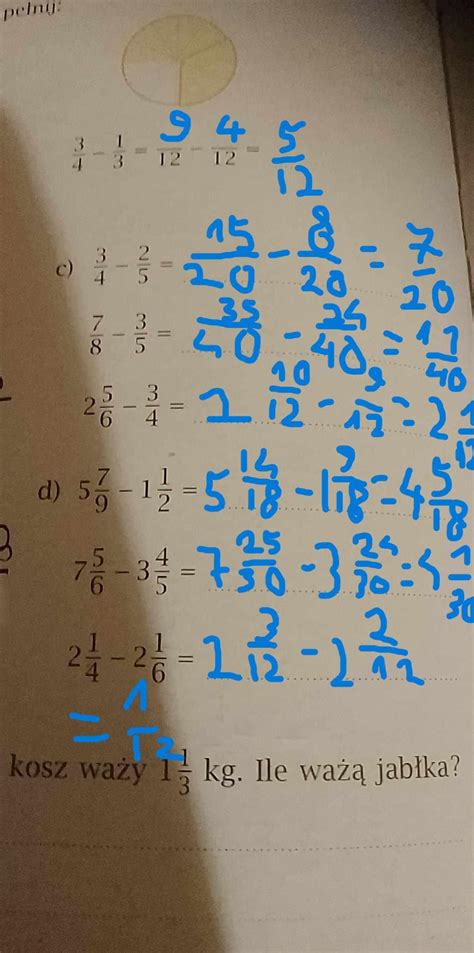 pełnij:
3/4 - 1/3 = 9/12 - 4/12 = 5/12
c) 3/4 - 2/5 = 15/20 - 8/20 = 7/20
7/8 - 3/5 = 35/40 - 24/40 = 11/40
2 5/6 - 3/4 = 2 10/12 - 9/12 = 2 1/12
d) 5 7/9 - 1 1/2 = 5 14/18 - 1 9/18 = 4 5/18
7 5/6 - 3 4/5 = 7 25/30 - 3 24/30 = 4 1/30
2 1/4 - 2 1/6 = 2 3/12 - 2 2/12
= 1/12
kosz waży 1 1/3 kg. Ile ważą jabłka?